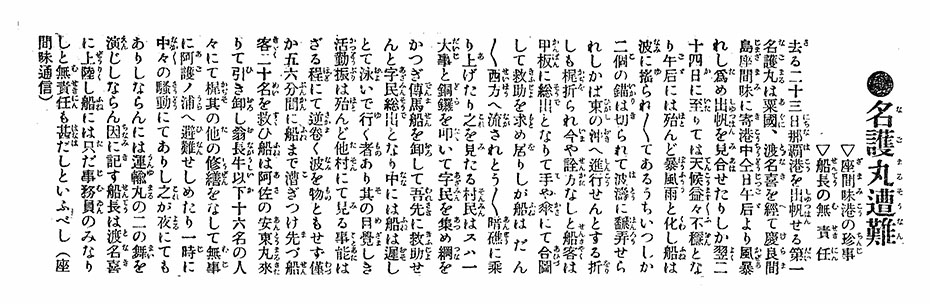 ●名護丸遭難
▽座間味港の珍事
▽船長の無責任
去る二十三日那覇港を出帆せる第一
名護丸は粟國、渡名喜を經て慶良間
島座間味に寄港中仝日午后より風暴
れし爲め出帆を見合せたりしか翌二
十四日に至りては天候益々不穏とな
り午后には殆んど暴風雨と化し船は
波に搖られ〱てあるうちいつしか
二個の錨は切られて波濤に飜弄せら
れしかば東の沖へ進行せんとする折
しも梶折られ今や詮方なしと船客は
甲板に総出となりて手や傘にて合圖
して救助を求め居りしが船はだん
〱西方へ流されとう〱暗礁に乘
り上げたり之を見たる村民はスハ一
大事と銅鑼を叩いて字民を集め綱を
かつぎ傳馬船を卸して吾先に救助せ
んと字民総出となり中には船は遲し
とて泳いで行く者あり其の目覺しき
活動振は殆んど他村にて見る事能は
ざる程にて逆卷く波を物ともせず僅
か五六分間に船まで漕ぎつけ先づ船
客二十名を救ひ船は阿佐の安東丸來
りて引き卸し翁長牛以下十六名の人
々にて梶其の他の修繕をなして無事
に阿護ノ浦へ避難せしめたり一時に
中々の騒動にてありし之が夜にても
ありしならんには運輸丸の二の舞を
演じしならん因に記す船長は渡名喜
に上陸し船には只だ事務員のみなり
しと無責任も甚だしといふべし（座
間味通信）